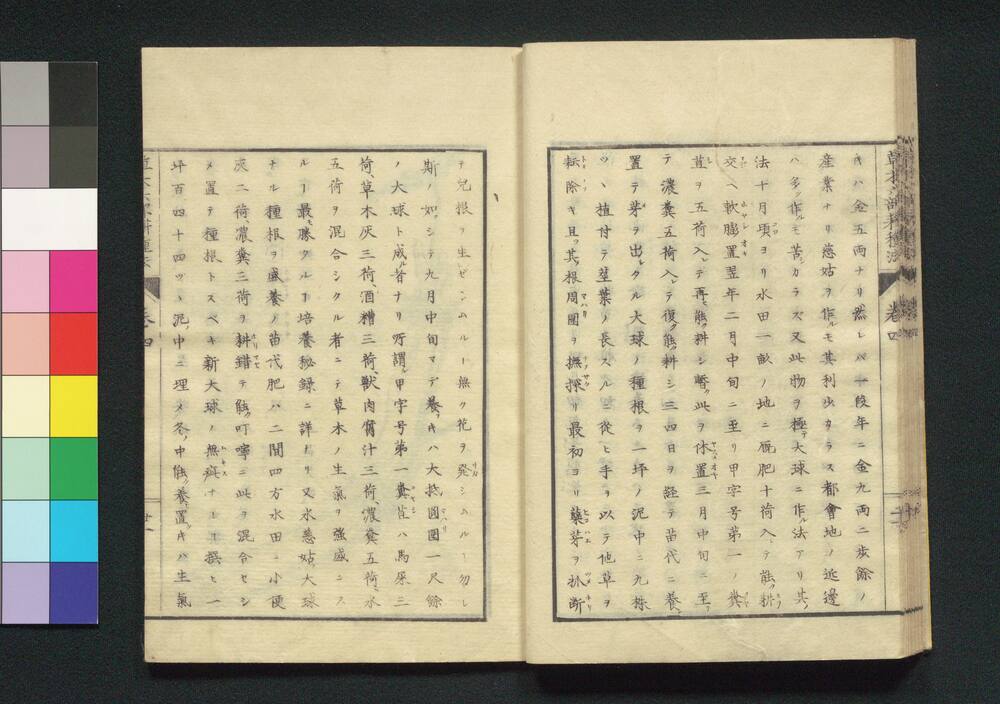 キハ金五両ナリ然レバ一段年ニ金九両二歩餘ノ
産業ナリ慈姑ヲ作ルモ其利少カラス都會地ノ近邊
ハ多ク作ルモ苦シカラズ又此物ヲ極テ大球ニ作ル法アリ其ノ
法十月頃ヨリ水田一畝ノ地ニ厩肥十荷入テ能ク耕シ
交ヘ軟膨置翌年二月中旬ニ至リ甲字号第一ノ糞
苴ヲ五荷入レテ再ヒ能ク耕シ暫ク此ヲ休置三月中旬ニ至
テ濃糞五荷入レテ復タ能ク耕シ三四日ヲ経テ苗代ニ養
置テ芽ヲ出シタル大球ノ種根ヲ一坪ノ泥中ニ九株
ツヽ植付テ莖葉ノ長スルニ從ヒ手ヲ以テ他草ヲ
耘除キ且ツ其根周圍ヲ撫探リ最初ヨリ蘖芽ヲ扒断
テ兒根ヲ生ゼシムルヿ無ク花ヲ発シムルヿ勿レ
斯ノ如シテ九月中旬マデ養キハ大抵圓圍一尺餘
ノ大球ト成ル者ナリ所謂ル甲字号第一糞苴ハ馬屎三
荷、草木灰三荷、酒糟三荷、獣肉腐汁三荷、濃糞五荷、水
五荷ヲ混合シタル者ニテ草木ノ生氣ヲ強盛ニス
ルヿ最モ勝タルヿ培養秘録ニ詳ナリ又水慈姑ノ大球
ナル種根ヲ盛養ノ苗代肥ハ二間四方水田ニ小便
灰二荷、濃糞三荷ヲ耕錯テ能ク叮嚀ニ此ヲ混合セシ
メ置テ種根トスベキ新大球ノ無疵ナヲ撰ヒ一
坪百四十四ツヽ泥中ニ埋メ冬ノ中能ク養置キハ生氣